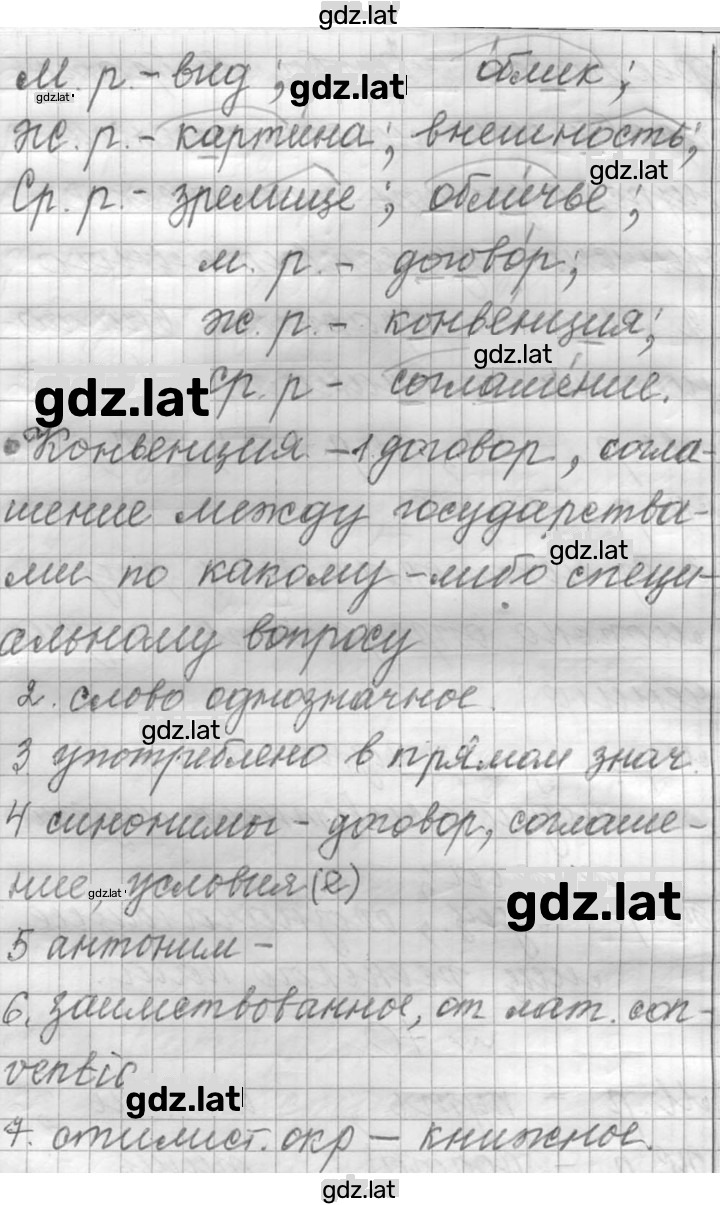 gdz.lat
м. р. - вид; облик;
gdz.lat
gdz.lat
ж. р. - картина; внешность;
gdz.lat
Ср. р. - зрелище; обличье;
м. р. - договор;
ж. р. - конвенция;
gdz.lat
ср. р - соглашение.
gdz.lat
• Конвенция - 1. договор, согла-
шение между государства-
gdz.lat
ми по какому-либо специ-
альному вопросу
2. слово однозначное.
gdz.lat
3. употреблено в прямом знач.
4 синонимы - договор, соглаше-
ние, условия (2)
gdz.lat
gdz.lat
5 антоним -
6. заимствованное, от лат. con-
ventic
gdz.lat
7. стилист. окр - книжное.
gdz.lat